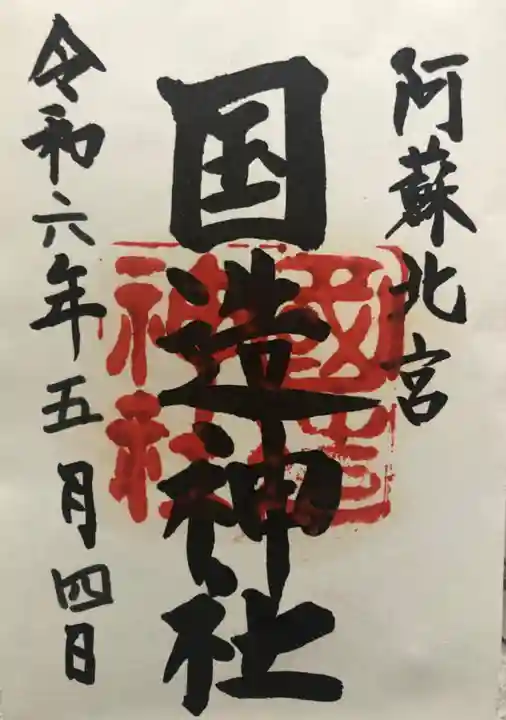 阿蘇北宮
国造神社
國造
神社
令和六年五月四日